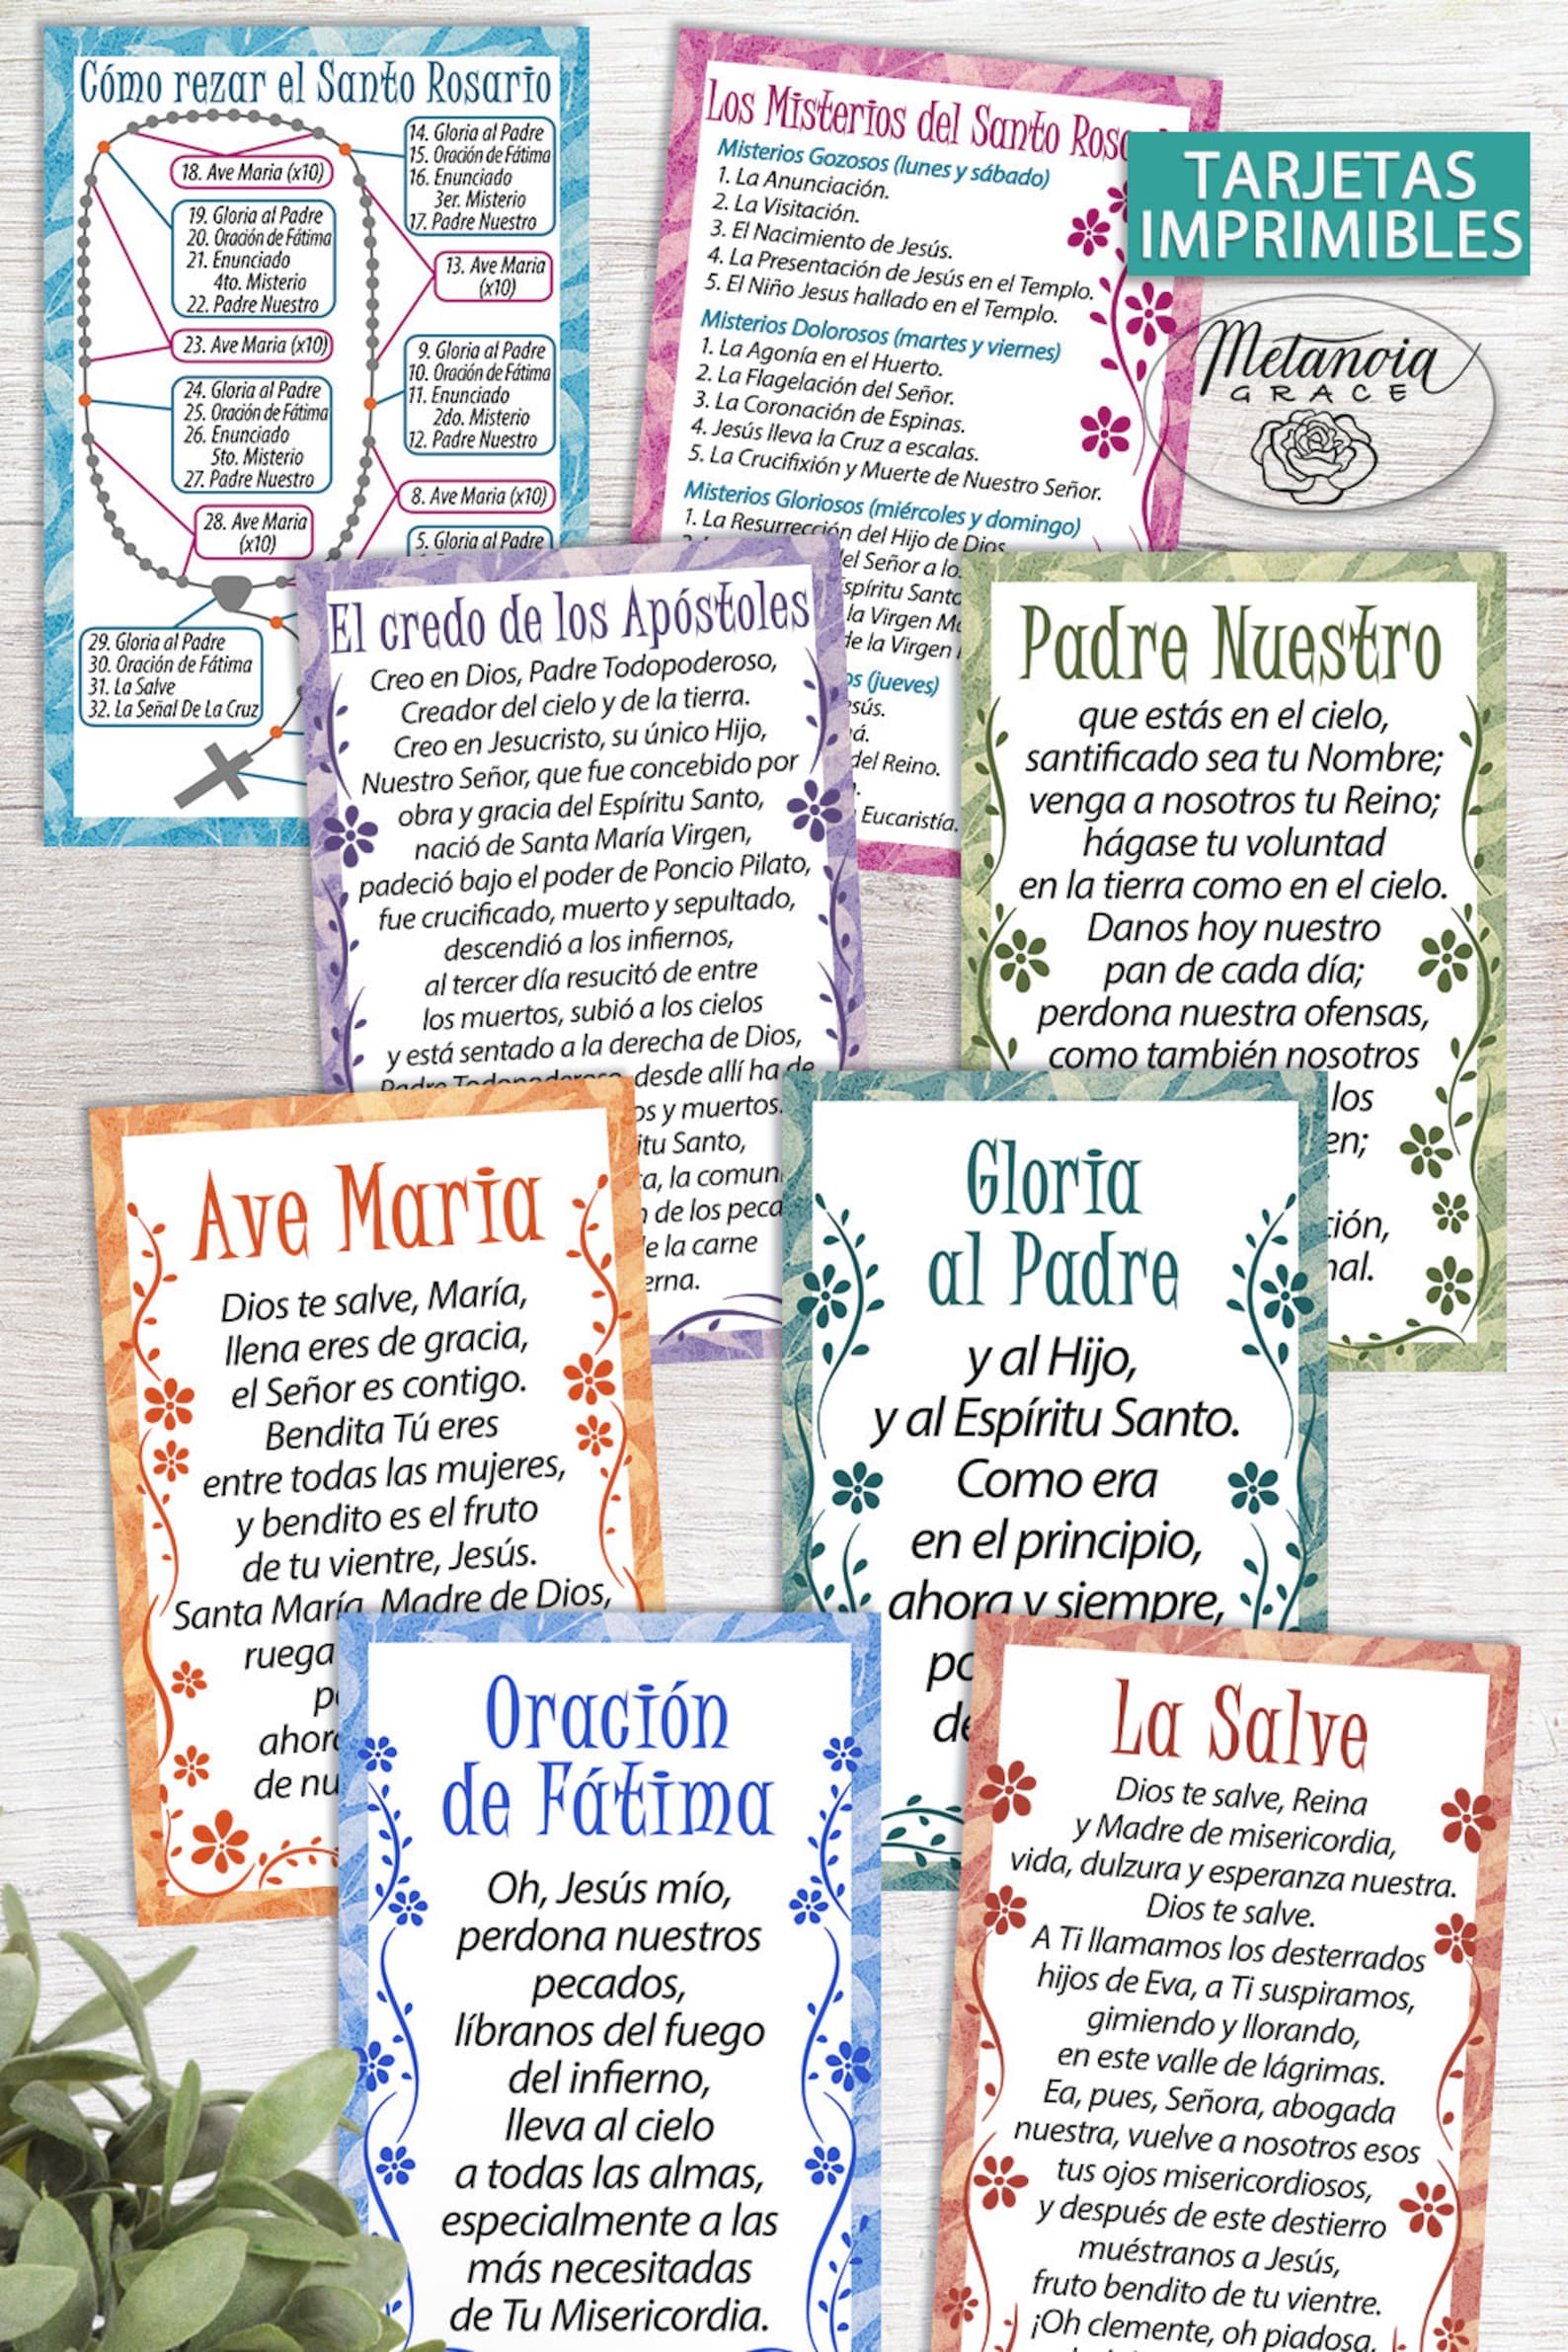 Cómo rezar el Santo Rosario
14. Gloria al Padre
15. Oración de Fátima
16. Enunciado
3er. Misterio
17. Padre Nuestro
18. Ave Maria (x10)
19. Gloria al Padre
20. Oración de Fátima
21. Enunciado
4to. Misterio
22. Padre Nuestro
13. Ave Maria
(x10)
23. Ave Maria (x10)
9. Gloria al Padre
10. Oración de Fátima
11. Enunciado
2do. Misterio
12. Padre Nuestro
24. Gloria al Padre
25. Oración de Fátima
26. Enunciado
5to. Misterio
27. Padre Nuestro
8. Ave Maria (x10)
28. Ave Maria
(x10)
5. Gloria al Padre
29. Gloria al Padre
30. Oración de Fátima
31. La Salve
32. La Señal De La Cruz
Los Misterios del Santo
Misterios Gozosos (lunes y sábado)
1. La Anunciación.
2. La Visitación.
3. El Nacimiento de Jesús.
4. La Presentación de Jesús en el Templo.
5. El Niño Jesus hallado en el Templo.
Misterios Dolorosos (martes y viernes)
1. La Agonía en el Huerto.
2. La Flagelación del Señor.
3. La Coronación de Espinas.
4. Jesús lleva la Cruz a escalas.
5. La Crucifixión y Muerte de Nuestro Señor.
Misterios Gloriosos (miércoles y domingo)
1. La Resurrección del Hijo de Dios
Señor a
la Virgen
de la Virgen
(jueves)
del Reino.
Eucaristía.
TARJETAS
IMPRIMIBLES
Metanoia
GRACE
El credo de los Apóstoles
Creo en Dios, Padre Todopoderoso,
Creador del cielo y de la tierra.
Creo en Jesucristo, su único Hijo,
Nuestro Señor, que fue concebido por
obra y gracia del Espíritu Santo,
nació de Santa María Virgen,
padeció bajo el poder de Poncio Pilato,
fue crucificado, muerto y sepultado,
descendió a los infiernos,
al tercer día resucitó de entre
los muertos, subió a los cielos
y está sentado a la derecha de Dios,
Padre Todopoderoso, desde allí ha de
y muertos.
Santo,
la
de los
la carne
Padre Nuestro
que estás en el cielo,
santificado sea tu Nombre;
venga a nosotros tu Reino;
hágase tu voluntad
en la tierra como en el cielo.
Danos hoy nuestro
pan de cada día;
perdona nuestra ofensas,
como también nosotros
los
Ave Maria
Dios te salve, María,
llena eres de gracia,
el Señor es contigo.
Bendita Tú eres
entre todas las mujeres,
y bendito es el fruto
de tu vientre, Jesús.
Santa María, Madre de Dios,
ruega
de
Gloria
al Padre
y al Hijo,
y al Espíritu Santo.
Como era
en el principio,
ahora y siempre,
Oración
de Fátima
Oh, Jesús mío,
perdona nuestros
pecados,
líbranos del fuego
del infierno,
lleva al cielo
a todas las almas,
especialmente a las
más necesitadas
de Tu Misericordia.
La Salve
Dios te salve, Reina
y Madre de misericordia,
vida, dulzura y esperanza nuestra.
Dios te salve.
A Ti llamamos los desterrados
hijos de Eva, a Ti suspiramos,
gimiendo y llorando,
en este valle de lágrimas.
Ea, pues, Señora, abogada
nuestra, vuelve a nosotros esos
tus ojos misericordiosos,
y después de este destierro
muéstranos a Jesús,
fruto bendito de tu vientre.
¡Oh clemente, oh piadosa,